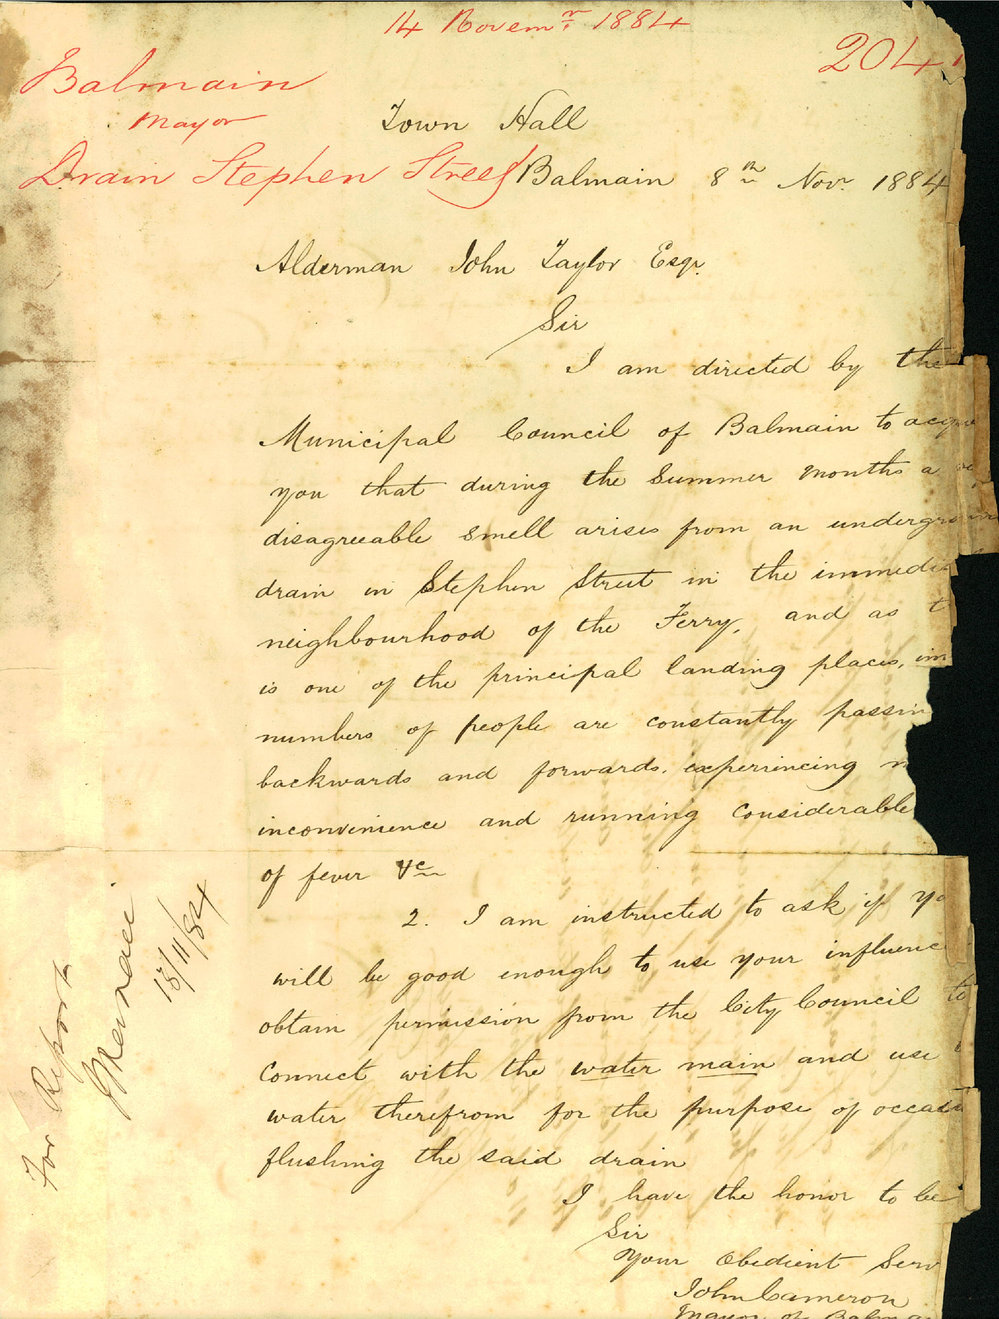 14 Novemr. 1884
204
Balmain
Mayor
Drain Stephen Street
Town Hall
Balmain 8th Novr 1884
Alderman John Taylor Esqr.
Sir
I am directed by the
Municipal Council of Balmain to acq
you that during the Summer months a
disagreeable smell arises from an undergro
drain in Stephen Street in the immedi
neighbourhood of the Ferry, and as t
is one of the principal landing places, im
numbers of people are constantly passin
backwards and forwards, experiencing
inconvenience and running considerable
of fever &c
2. I am instructed to ask if yo
will be good enough to use your influenc
obtain permission from the City Council to
connect with the water main and use
water therefrom for the purpose of occasi
flushing the said drain
I have the honor to be
Sir
Your Obedient Serv
John Cameron
Mayor of Balma
For Report
18/11/84